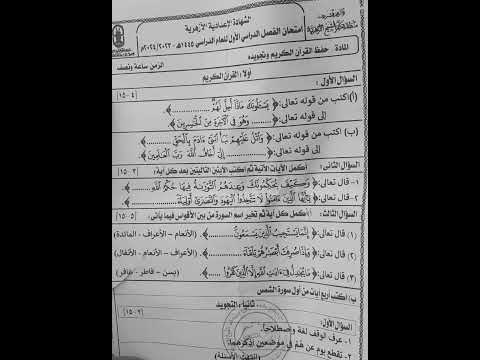 الشهادة الإعدادية الأزهرية
امتحان الفصل الدراسي الأول للعام الدراسي ١٤٤٥هـ - ٢٠٢٣/٢٠٢٤م
المادة : حفظ القرآن الكريم وتجويده
الزمن ساعة ونصف
أولا : القرآن الكريم
السؤال الأول :
(٤-١٥)
(أ) اكتب من قوله تعالى: ﴿ يَسْـَٔلُونَكَ مَاذَآ أُحِلَّ لَهُمْ .......... ﴾
إلى قوله تعالى: ﴿ .......... وَهُوَ فِى ٱلْـَٔاخِرَةِ مِنَ ٱلْخَـٰسِرِينَ ﴾
(ب) اكتب من قوله تعالى: ﴿ وَٱتْلُ عَلَيْهِمْ نَبَأَ ٱبْنَىْ ءَادَمَ بِٱلْحَقِّ .......... ﴾
إلى قوله تعالى: ﴿ .......... إِنِّىٓ أَخَافُ ٱللَّهَ رَبَّ ٱلْعَـٰلَمِينَ ﴾
السؤال الثانى : أكمل الآيات الآتية ثم اكتب الآيتين التاليتين بعد كل آية:
(٣-١٥)
١- قال تعالى: ﴿ وَكَيْفَ يُحَكِّمُونَكَ وَعِندَهُمُ ٱلتَّوْرَىٰةُ فِيهَا حُكْمُ ٱللَّهِ ..... ﴾
٢- قال تعالى: ﴿ يَـٰٓأَيُّهَا ٱلَّذِينَ ءَامَنُوا۟ لَا تَتَّخِذُوا۟ ٱلْيَهُودَ وَٱلنَّصَـٰرَىٰٓ أَوْلِيَآءَ ..... ﴾
السؤال الثالث : أ: أكمل كل آية ثم تخير اسم السورة من بين الأقواس فيما يأتى:
(٥-١٥)
(١) قال تعالى: ﴿ إِنَّمَا يَسْتَجِيبُ ٱلَّذِينَ يَسْمَعُونَ ..... ﴾ (الأنعام - الأعراف - المائدة)
(٢) قال تعالى: ﴿ وَإِذَا صُرِفَتْ أَبْصَـٰرُهُمْ تِلْقَآءَ ..... ﴾ (الأنعام - الأعراف - الأنفال)
(٣) قال تعالى: ﴿ مَا يُجَـٰدِلُ فِىٓ ءَايَـٰتِ ٱللَّهِ إِلَّا ٱلَّذِينَ كَفَرُوا۟ ..... ﴾ (يس - فاطر - غافر)
ب: اكتب أربع آيات من أول سورة الشمس
ثانيا : التجويد
السؤال الأول:
(٢-١٥)
١- عرف الوقف لغة واصطلاحاً.
٢- تقطع يوم عن هُمْ في موضعين اذكرهما.
(انتهت الأسئلة)